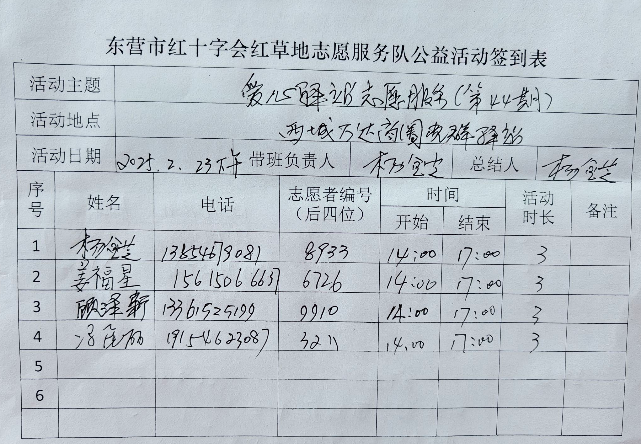 东营市红十字会红草地志愿服务队公益活动签到表
活动主题 爱心驿站志愿服务(第44期)
活动地点 西城万达商圈 驿站
活动日期 2025.2.23下午 带班负责人 杨 总结人 杨
序号 姓名 电话 志愿者编号(后四位) 时间 开始 结束 活动时长 备注
1 杨 13854679081 8933 14:00 17:00 3
2 姜福星 15615066637 6726 14:00 17:00 3
3 顾泽新 13361525199 9910 14:00 17:00 3
4 19154623087 3211 14:00 17:00 3
5
6